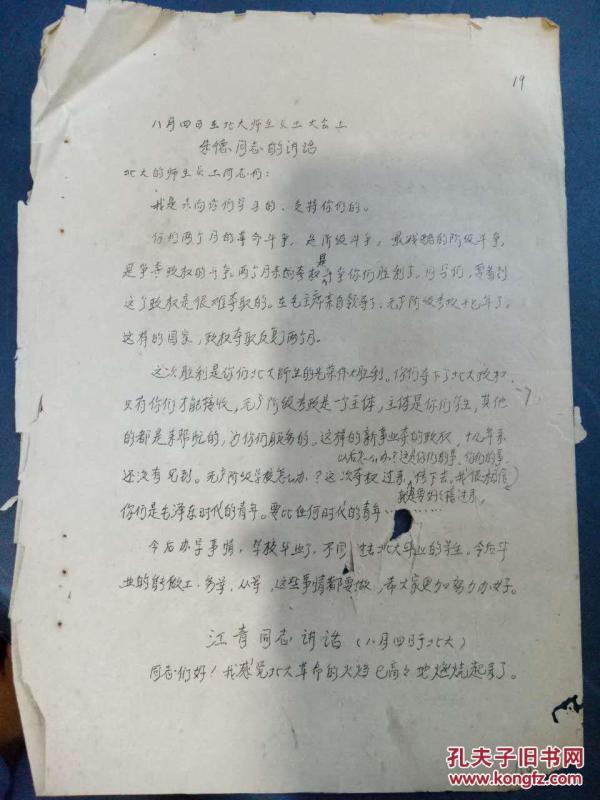 19
八月四日在北大师生员工大会上
朱德同志的讲话
北大的师生员工同志们：
我是来向你们学习的、支持你们的。
你们两个月的革命斗争，是阶级斗争，最残酷的阶级斗争，
是争夺政权的斗争。两个月来的夺权斗争你们胜利了。同学们，要看到
这个政权是很难夺取的。在毛主席亲自领导下，无产阶级夺权十七年了。
这样的国家，政权夺取反复了两个月。
这次胜利是你们北大师生的光荣伟大胜利。你们夺下了北大政权，
只有你们才能接收，无产阶级专政是一个主体，主体是你们学生，其他
的都是，为你们服务的。这样的新事业夺的政权，十九年来
以后怎么办？这是你们的事，你们的事
还没有见到。无产阶级学校怎么办？这次夺权过来，传下去。我很相信
我是要好好接过来。
你们是毛泽东时代的青年。要比任何时代的青年…………
今后办学事情，学校毕业了，不同过去北大毕业的学生。今后毕
业的能做工、务学、从军，这些事情都要做，希大家更加努力办好。
江青同志讲话（八月四日于北大）
同志们好！我感觉北大革命的火焰已高高地燃烧起来了。
孔夫子旧书网
www.kongfz.com